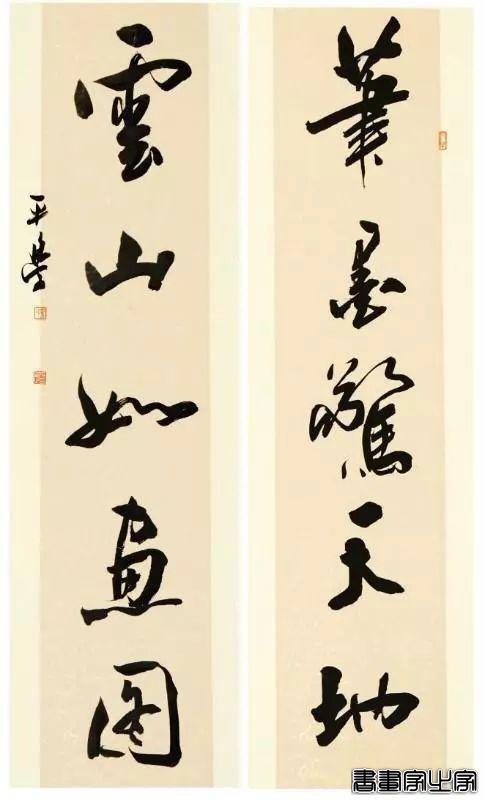 筆墨驚天地
雲山如畫圖
平
書畫家之家